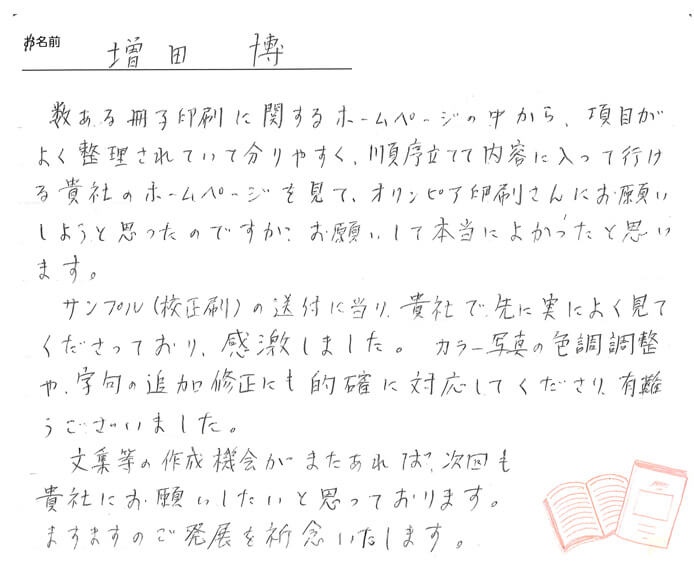 お名前 増田 博
数ある冊子印刷に関するホームページの中から、項目が
よく整理されていて分りやすく、順序立てて内容に入って行け
る貴社のホームページを見て、オリンピア印刷さんにお願い
しようと思ったのですが、お願いして本当によかったと思い
ます。
サンプル(校正刷)の送付に当り、貴社で先に実によく見て
くださっており、感激しました。カラー写真の色調調整
や、字句の追加修正にも的確に対応してくださり、有難
うございました。
文集等の作成機会がまたあれば、次回も
貴社にお願いしたいと思っております。
ますますのご発展を祈念いたします。